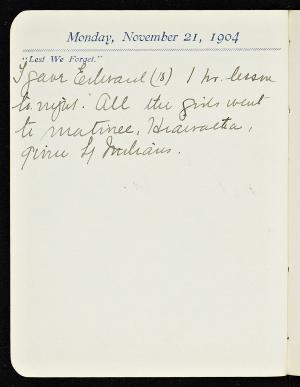 Monday, November 21, 1904
"Lest We Forget."
I gave Edward (18) 1 hr. lesson
to night. All the girls went
to matinee, Hiawatha,
given by Indians.